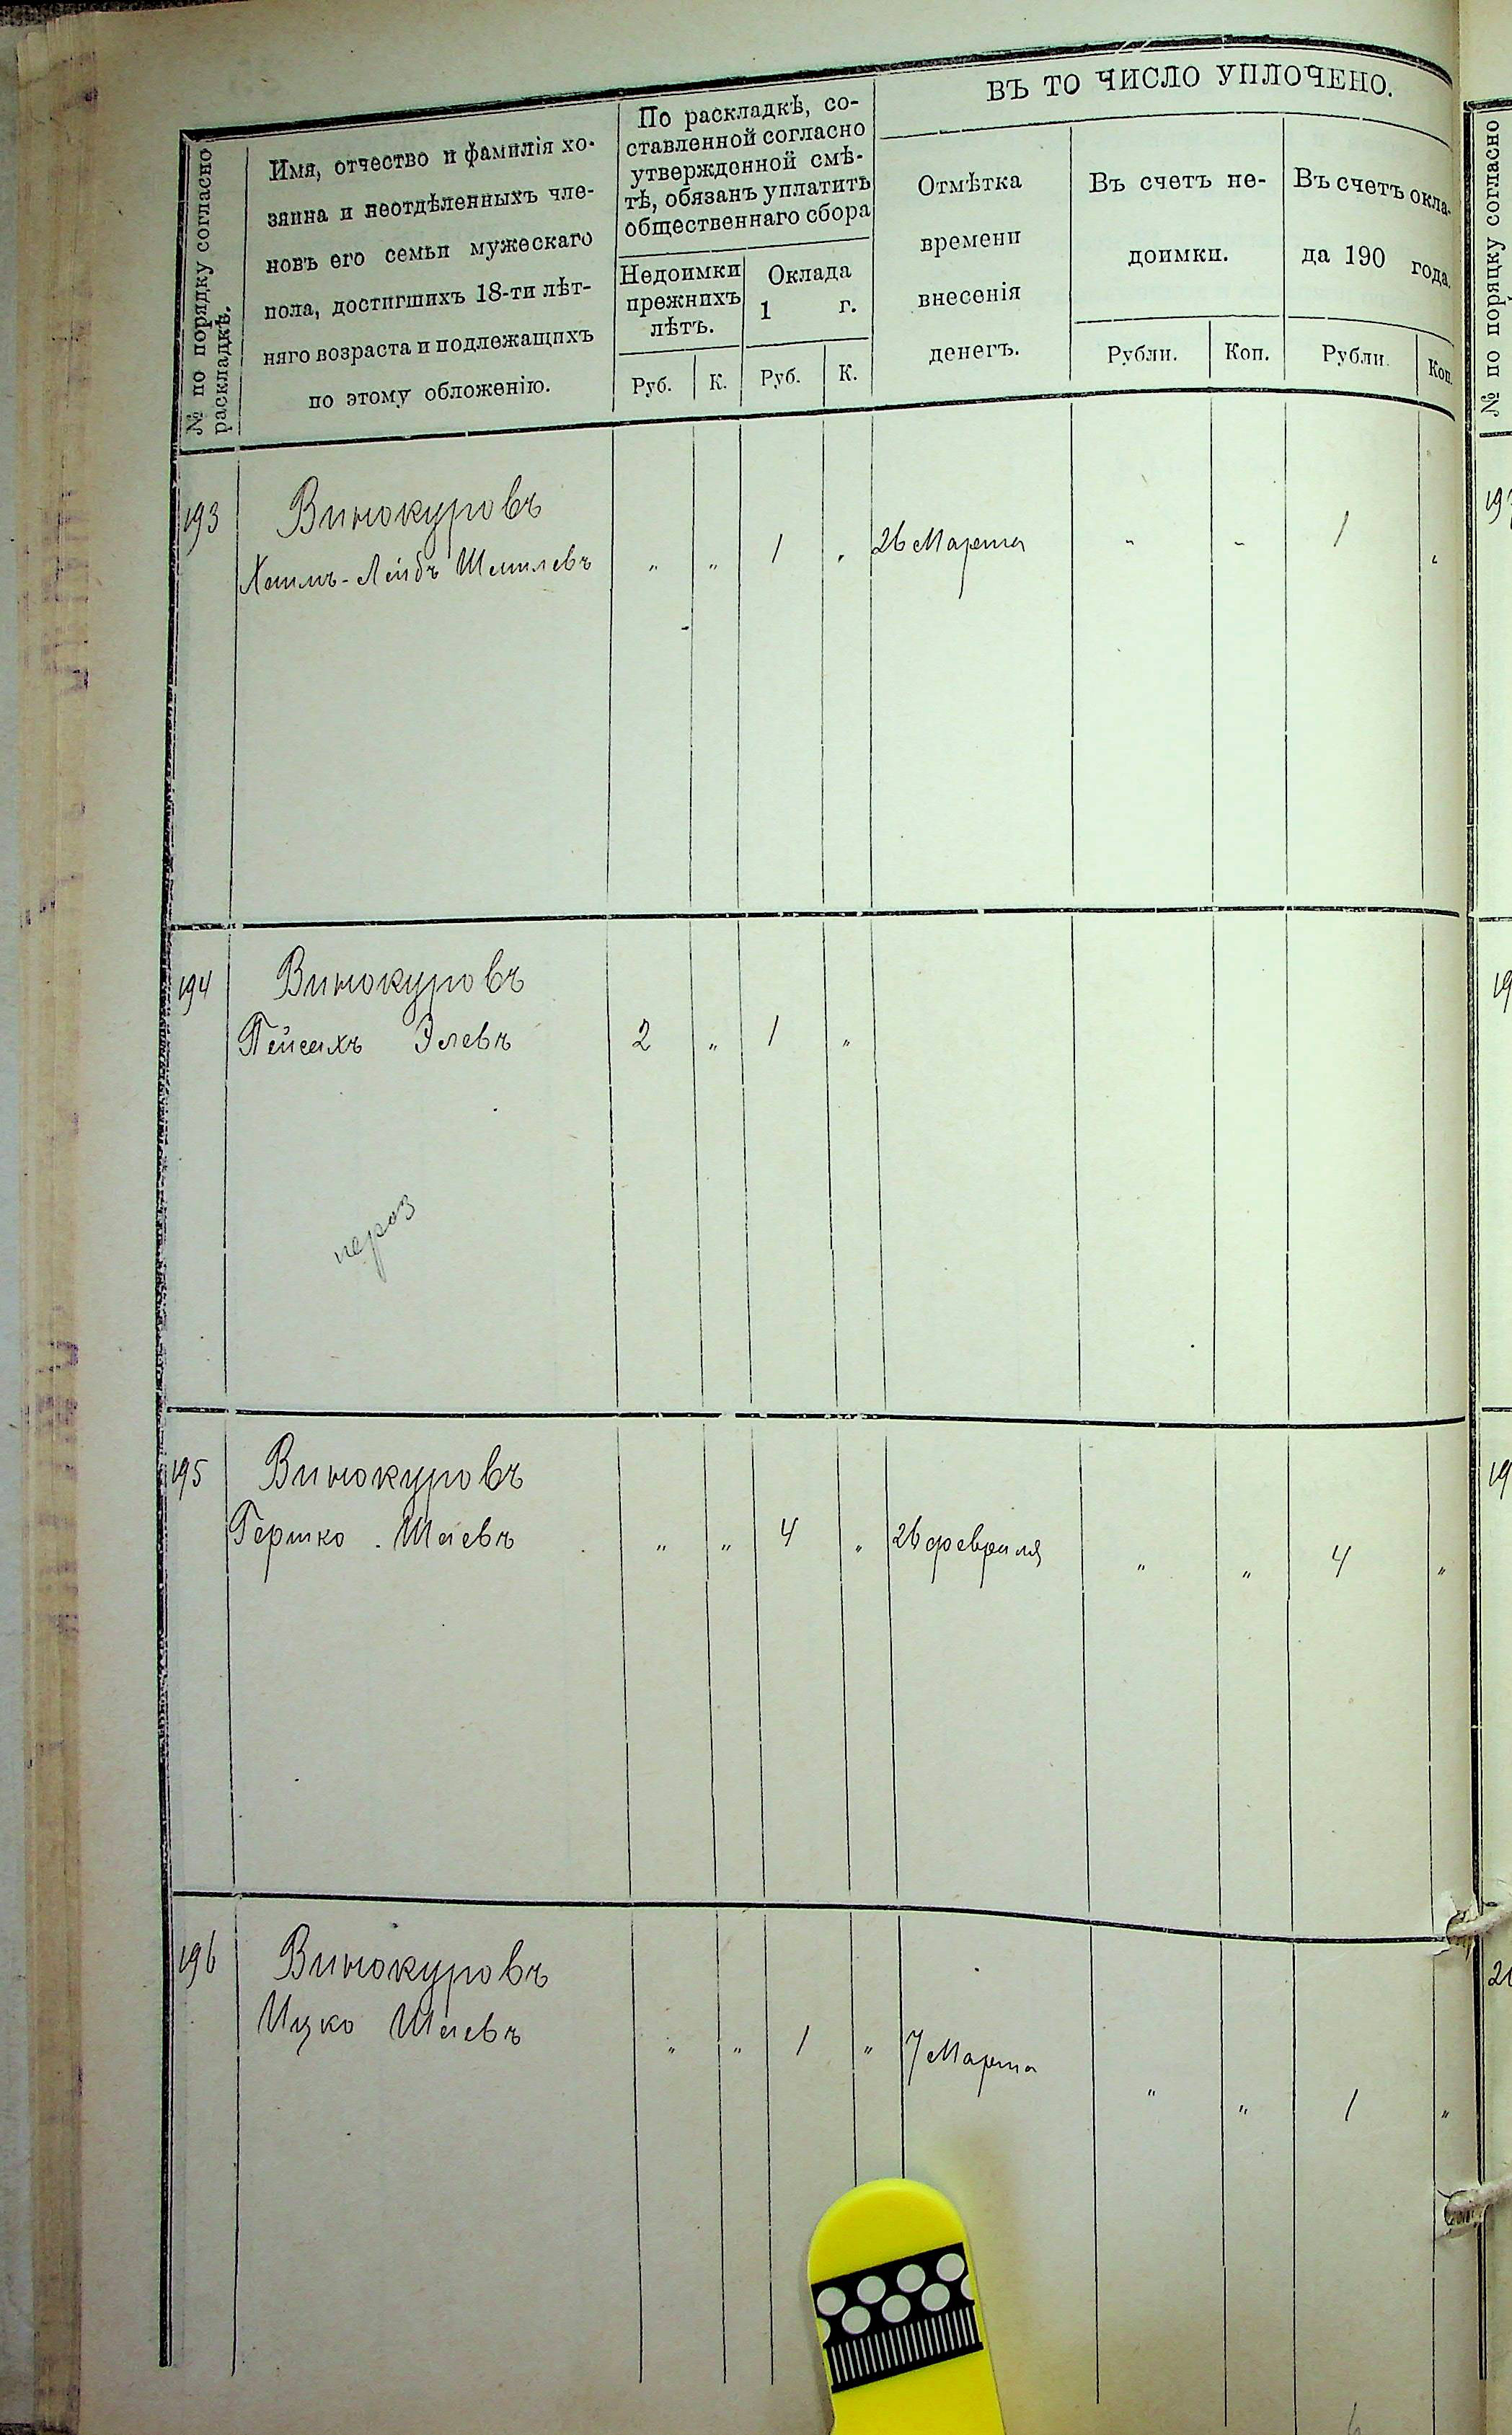 ВЪ ТО ЧИСЛО УПЛОЧЕНО.
№ по порядку согласно
раскладкѣ.
Имя, отчество и фамилія хо-
зяина и неотдѣленныхъ чле-
новъ его семьи мужескаго
пола, достигшихъ 18-ти лѣт-
няго возраста и подлежащихъ
по этому обложенію.
По раскладкѣ, со-
ставленной согласно
утвержденной смѣ-
тѣ, обязанъ уплатить
общественнаго сбора
Недоимки
прежнихъ
лѣтъ.
Руб. К.
Оклада
1 г.
Руб. К.
Отмѣтка
времени
внесенія
денегъ.
Въ счетъ не-
доимки.
Рубли. Коп.
Въ счетъ окла-
да 190 года.
Рубли. Коп.
№ по порядку согласно
193 Винокуровъ
Хаимъ-Лейбъ Шмилевъ „ „ 1 „ 26 Марта „ „ 1 „
194 Винокуровъ
Пейсахъ Элевъ 2 „ 1 „
195 Винокуровъ
Гершко Шаевъ „ „ 4 „ 26 февраля „ „ 4 „
196 Винокуровъ
Ицко Шаевъ „ „ 1 „ 7 Марта „ „ 1 „